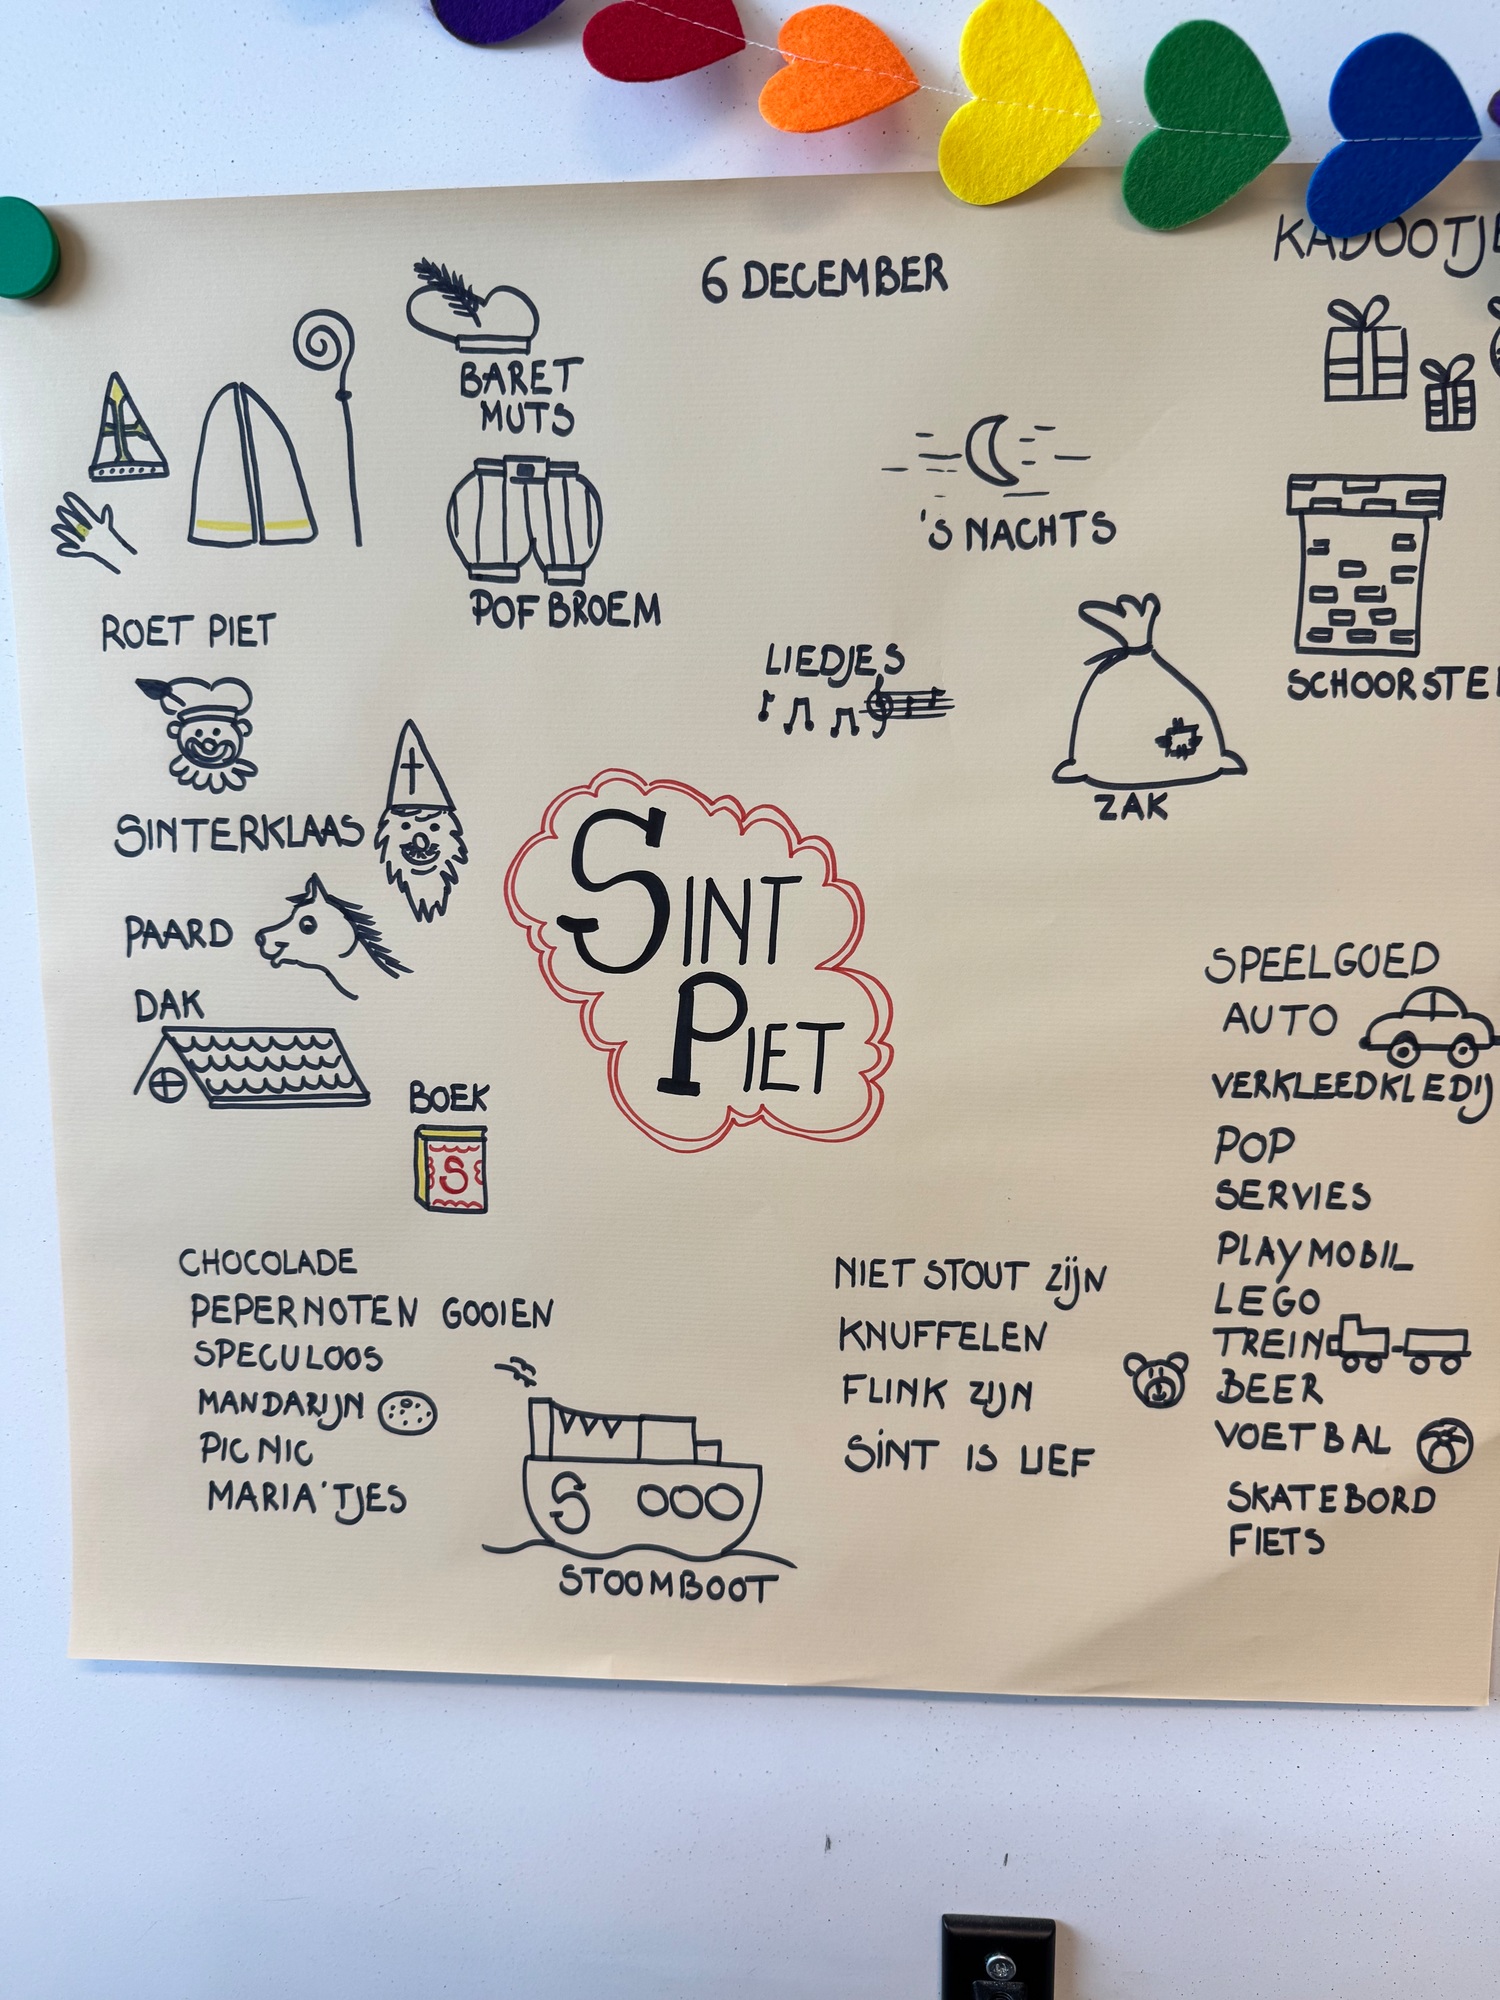 6 DECEMBER
KADOOTJE
BARET
MUTS
'S NACHTS
POF BROEM
ROET PIET
LIEDJES
SCHOORSTE
ZAK
SINTERKLAAS
PAARD
DAK
SINT
PIET
BOEK
S
SPEELGOED
AUTO
VERKLEEDKLEDIJ
POP
SERVIES
PLAYMOBIL
LEGO
TREIN
BEER
VOETBAL
SKATEBORD
FIETS
CHOCOLADE
PEPERNOTEN GOOIEN
SPECULOOS
MANDARIJN
PICNIC
MARIA'TJES
NIET STOUT ZIJN
KNUFFELEN
FLINK ZIJN
SINT IS LIEF
S
STOOMBOOT